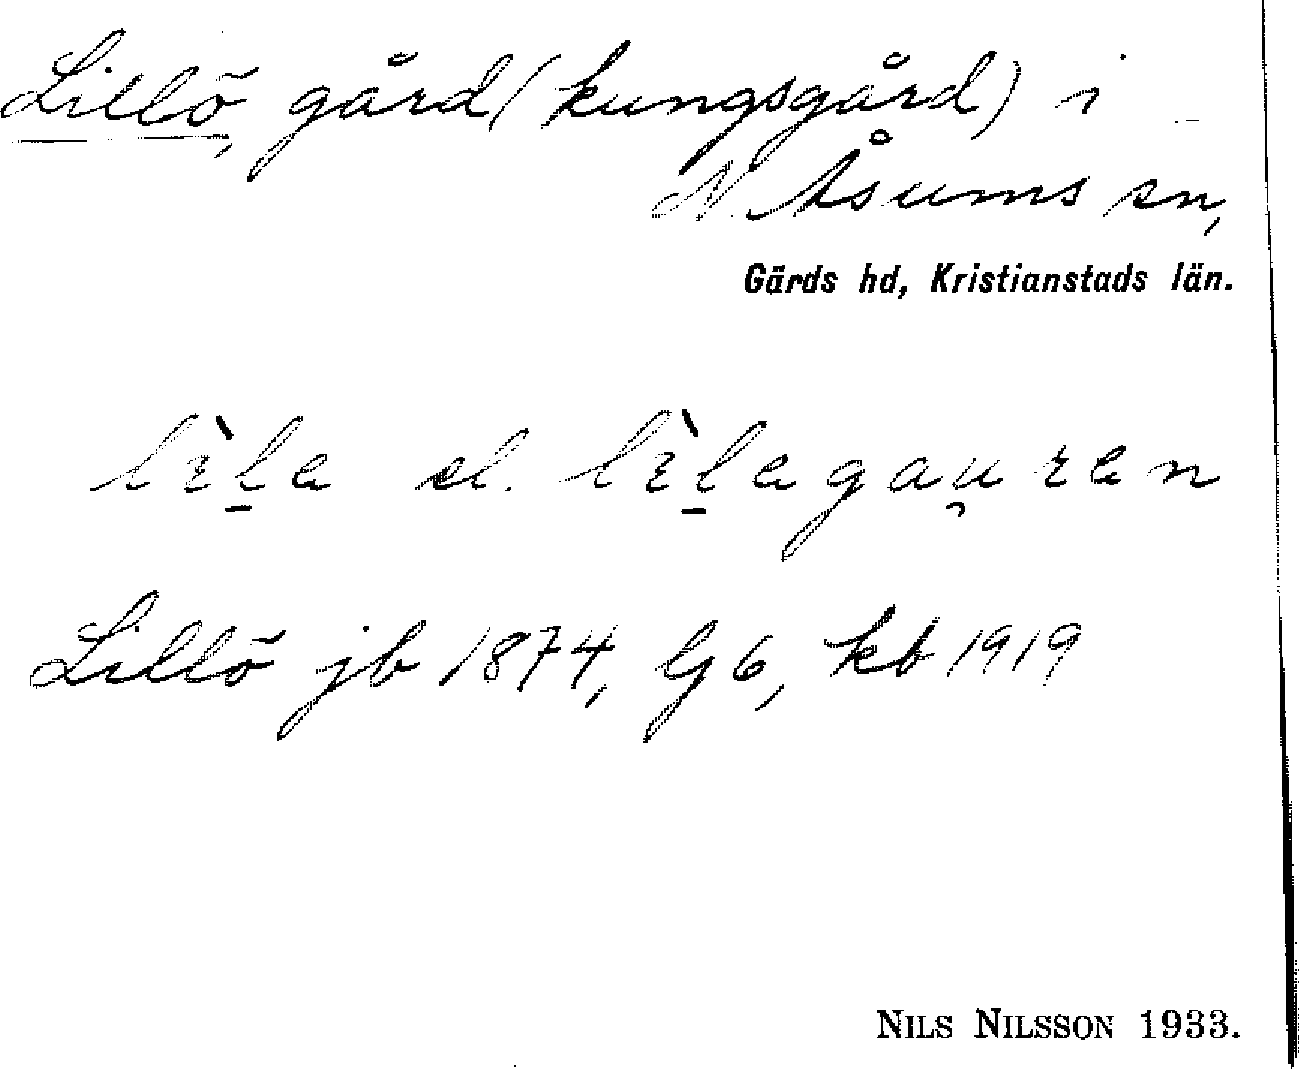 Lillö, gård (kungsgård) i
N. Åsums sn,
Gärds hd, Kristianstads län.
lìla el. lìlagau̯ran
Lillö jb 1874, Gj 6, kb 1919
NILS NILSSON 1933.